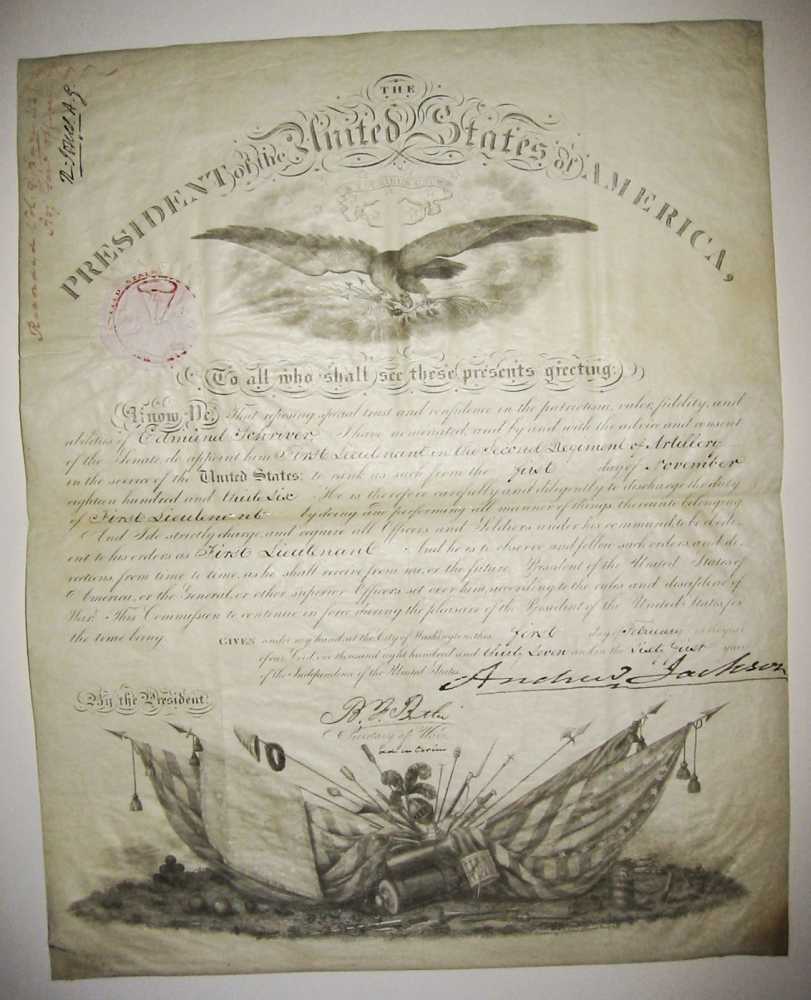 THE
PRESIDENT of the United States of AMERICA,
To all who shall see these presents greeting:
Know Ye, That reposing special trust and confidence in the patriotism, valor, fidelity, and
abilities of Edmund Schriver I have nominated, and by and with the advice and consent
of the Senate, do appoint him First Lieutenant in the Second Regiment of Artillery
in the service of the United States: to rank as such from the first day of November
eighteen hundred and thirty six. He is therefore carefully and diligently to discharge the duty
of First Lieutenant by doing and performing all manner of things thereunto belonging.
And I do strictly charge, and require all Officers and Soldiers under his command, to be obedi-
ent to his orders as First Lieutenant. And he is to observe and follow such orders, and di-
rections from time to time, as he shall receive from me, or the future President of the United States of
America, or the General, or other superior Officers set over him, according to the rules and discipline of
War. This Commission to continue in force during the pleasure of the President of the United States, for
the time being.
GIVEN under my hand, at the City of Washington, this first day of February in the year
of our Lord, one thousand eight hundred and thirty seven and in the sixty first year
of the Independence of the United States.
Andrew Jackson
By the President:
B. F. Butler
Secretary of War
ad interim